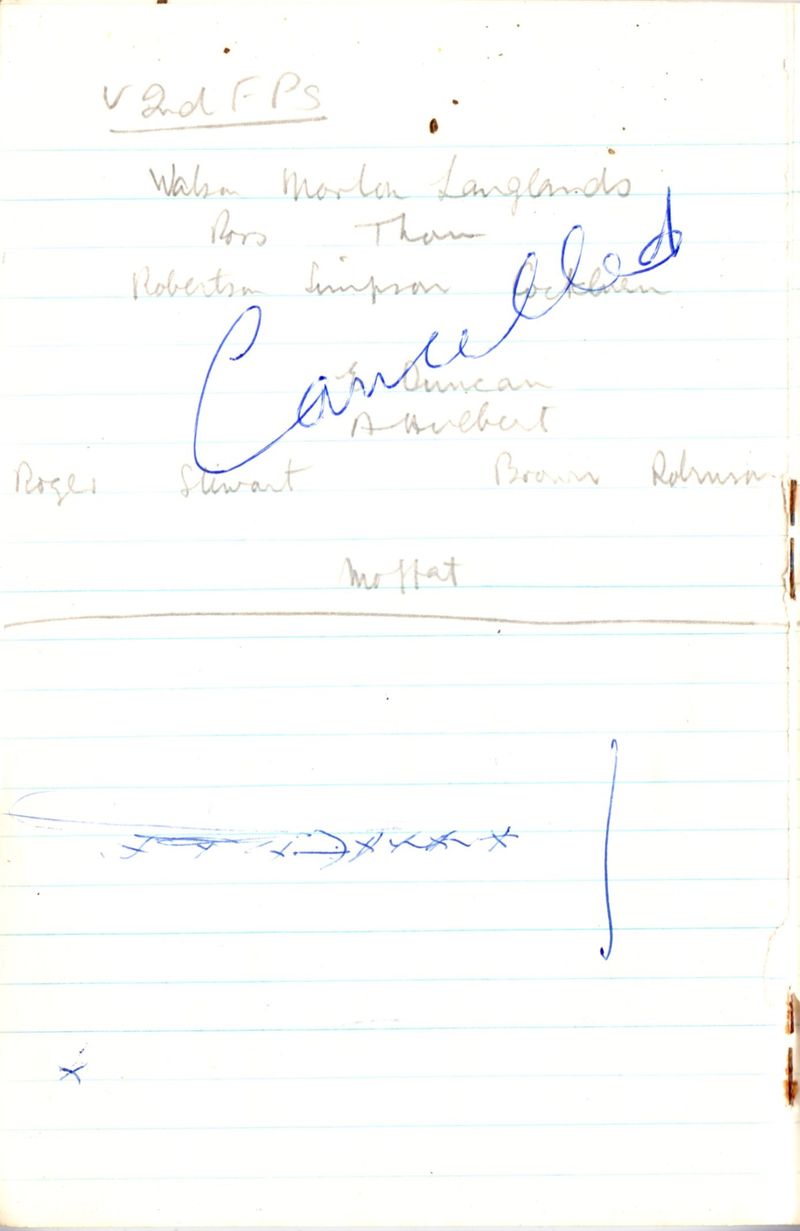 V 2nd F P s
Watson Morton Langlands
Ross Thom
Robertson Simpson Cockburn
Cancelled
E Duncan
A Hulbert
Roger Stewart Brown Robinson
Moffat